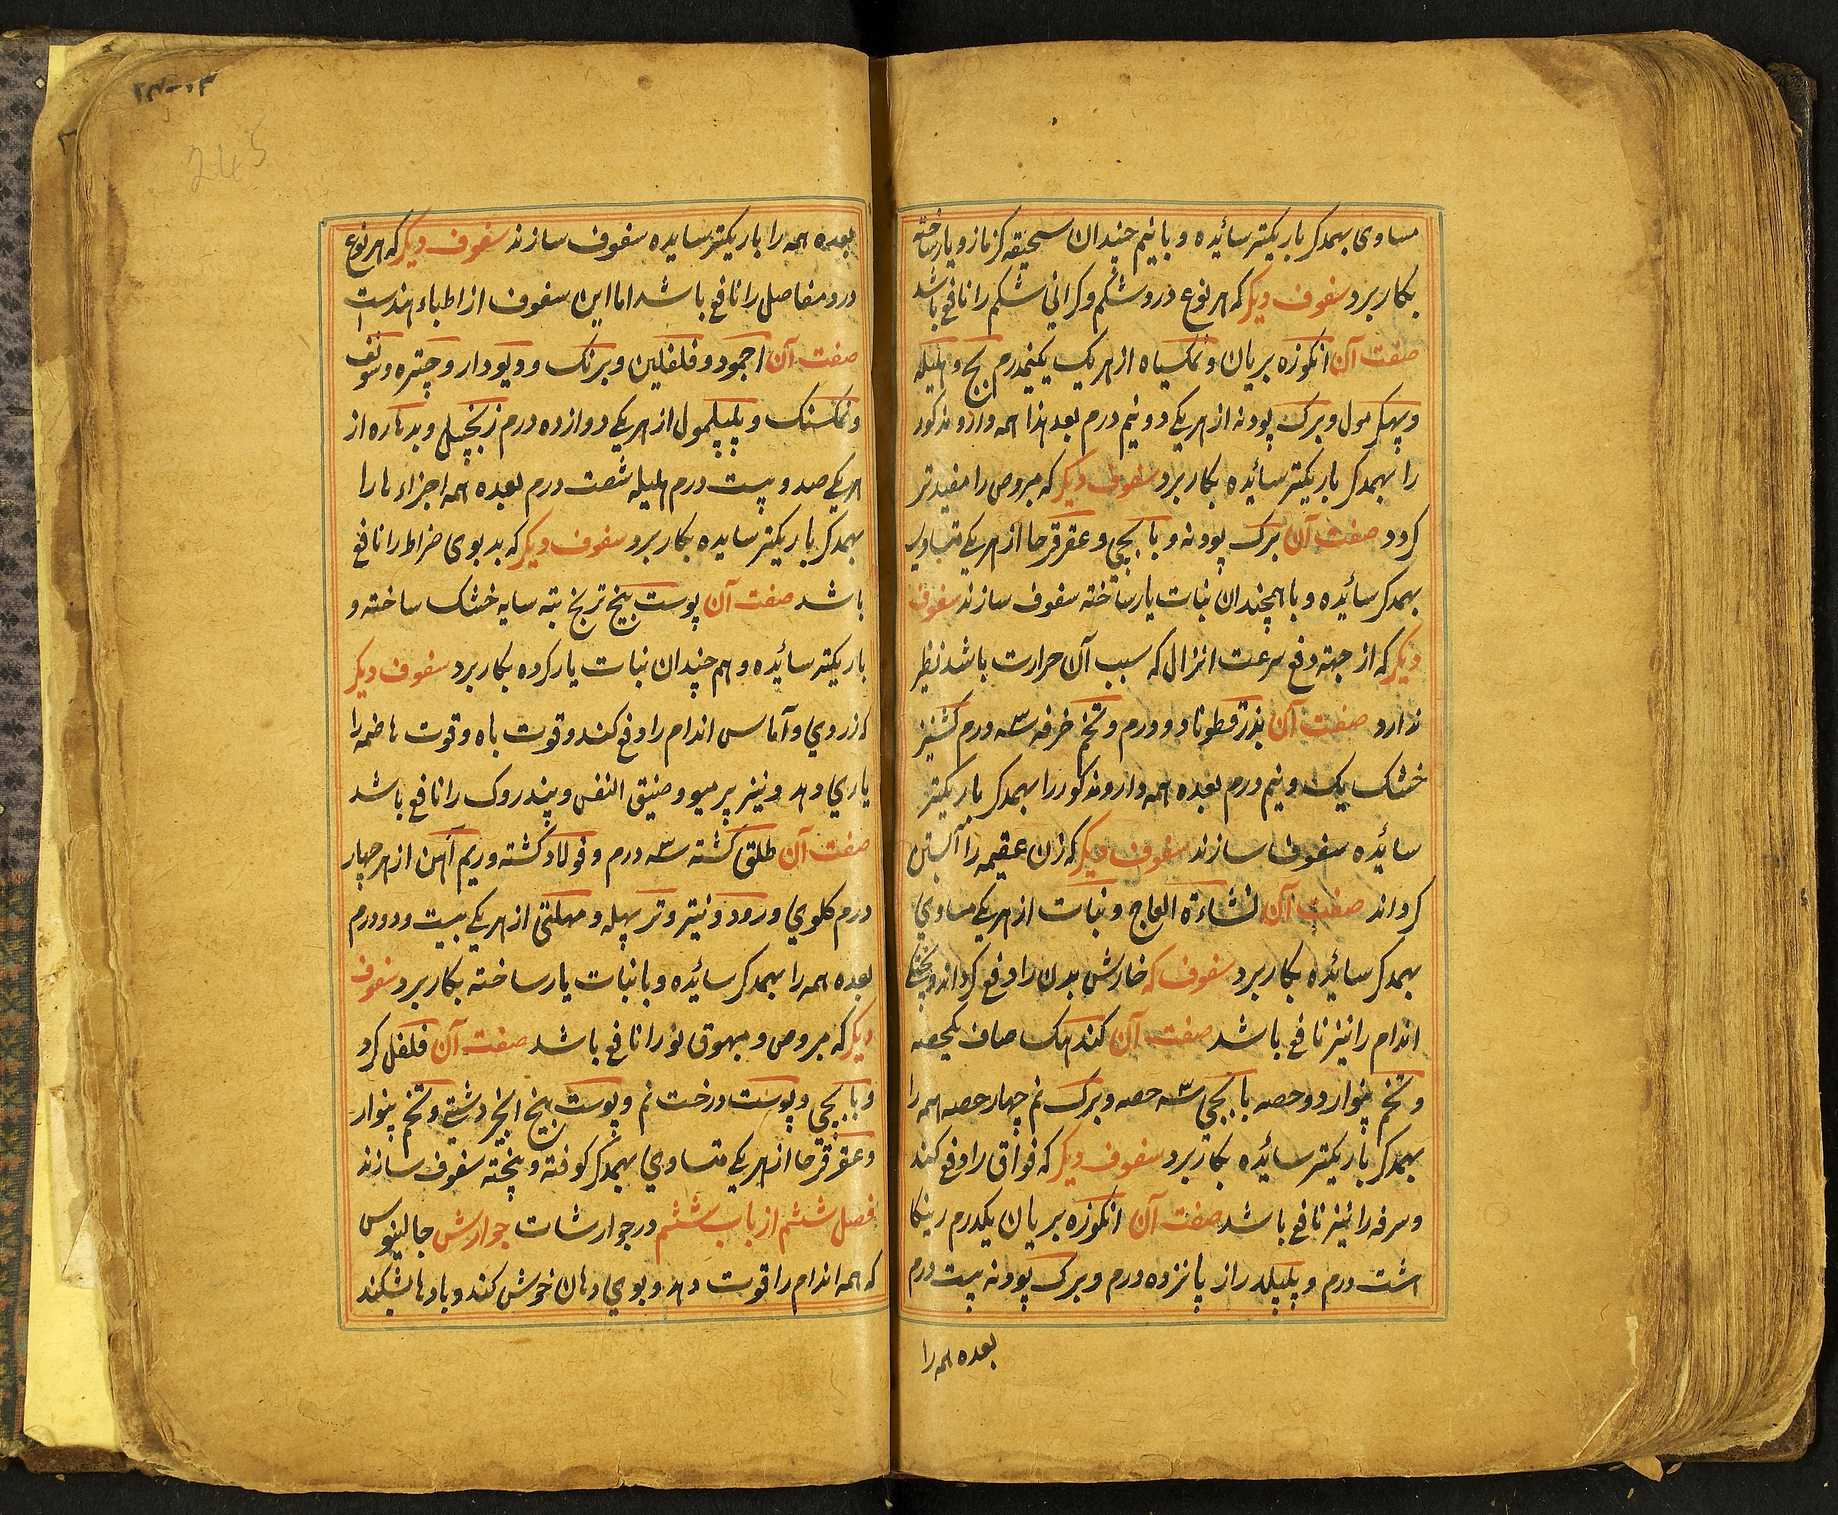 مساوی بهمدکر باریکتر سائیده و بانیم چندان سحیقه کزمازو یار ساخته
بکار برد سفوف دیکر که هر نوع درد شکم و کرانی شکم را نافع باشد
صفت آن انکوزه بریان و نمکسیاه از هر یک یکنیمدرم بج و هلیله
و پهکر مول و برک پودنه از هر یکی دو نیم درم بعد هذا همه دارو مذکور
را بهمدکر باریکتر سائیده بکار برد سفوف دیکر که مبروص را مفید تر
کردد صفت آن برک پودنه و بابچی و عقرقرحا از هر یکی متساوی
بهمدکر سائیده و با همچندان نبات یار ساخته سفوف سازند سفوف
دیکر که از جهته دفع سرعت انزال که سبب آن حرارت باشد نظیر
ندارد صفت آن بذرقطونا دو درم و تخم خرفه سه درم کشنیز
خشک یک و نیم درم بعده همه دارو مذکور را بهمدکر باریکتر
سائیده سفوف سازند سفوف دیکر که زن عقیمه را آبستن
کرداند صفت آن نشاءة العاج و نبات از هر یکی مساوی
بهمدکر سائیده بکار برد سفوف که خارش بدن را دفع کرداند و پختکی
اندام را نیز نافع باشد صفت آن کندهک صاف یکحصه
و تخم پنوار دو حصه بابچی سه حصه و برک نم چهار حصه همه را
بهمدکر باریکتر سائیده بکار برد سفوف دیکر که فواق را دفع کند
و سرفه را نیز نافع باشد صفت آن انکوزه بریان یکدرم
هشت درم و پلپلدراز پانزده درم و برک پودنه بیست درم
بعده همه را
۲۴۰۳
245
بعده همه را باریکتر سایده سفوف سازند سفوف دیکر که هر نوع
درد مفاصل را نافع باشد اما این سفوف از اطباء هندست
صفت آن اجمود و فلفلین و برنک و دیودار و چتره و سونف
و نمکسنک و پلپلمول از هر یکی دوازده درم زنجبیل و بدهاره از
هر یکی صد و بیست درم هلیله شصت درم بعده همه اجزاء ها را
بهمدکر باریکتر سایده بکار برد سفوف دیکر که بدبوی ضراط را نافع
باشد صفت آن پوست بیخ ترنج بته سایه خشک ساخته و
باریکتر سائیده و هم چندان نبات یار کرده بکار برد سفوف دیکر
که زردی و آماس اندام را دفع کند و قوت باه و قوت هاضمه را
یاری دهد و نیز پرمیو و ضیق النفس و پندروک را نافع باشد
صفت آن طلق کشته سه درم و فولاد کشته و ریم آهن از هر چهار
درم کلوی و رود و نیتر و تر پهله و مهلتی از هر یکی بیست و دو درم
بعده همه را بهمدکر سائیده و با نبات یار ساخته بکار برد سفوف
دیکر که مبروص و مبهوق نو را نافع باشد صفت آن فلفل کرد
و بابچی و پوست درخت نم و پوست بیخ انجیر دشتی و تخم پنوار
و عقرقرحا از هر یکی متساوی بهمدکر کوفته و بیخته سفوف سازند
فصل ششم از باب ششم در جوارشات جوارش جالینوس
که همه اندام را قوت دهد و بوی دهان خوش کند و بادها بشکند